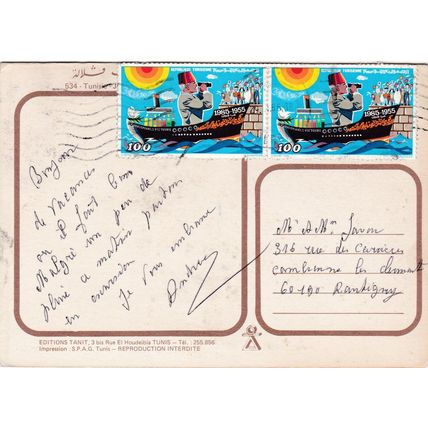 534 - Tunis
REPUBLIQUE TUNISIENNE
1985-1955
100
REPUBLIQUE TUNISIENNE
1985-1955
100
Bonjour
de vacances
où il fait bon
Malgré un peu de
pluie ce matin partons
en excursion
Je vous embrasse
Andrée
Mr & Mme Javon
316 rue des Carrières
Cambronne les Clermont
60190 Rantigny
EDITIONS TANIT, 3 bis Rue El Houdeibia TUNIS - Tél. : 255.856
Impression : S.P.A.G. Tunis - REPRODUCTION INTERDITE